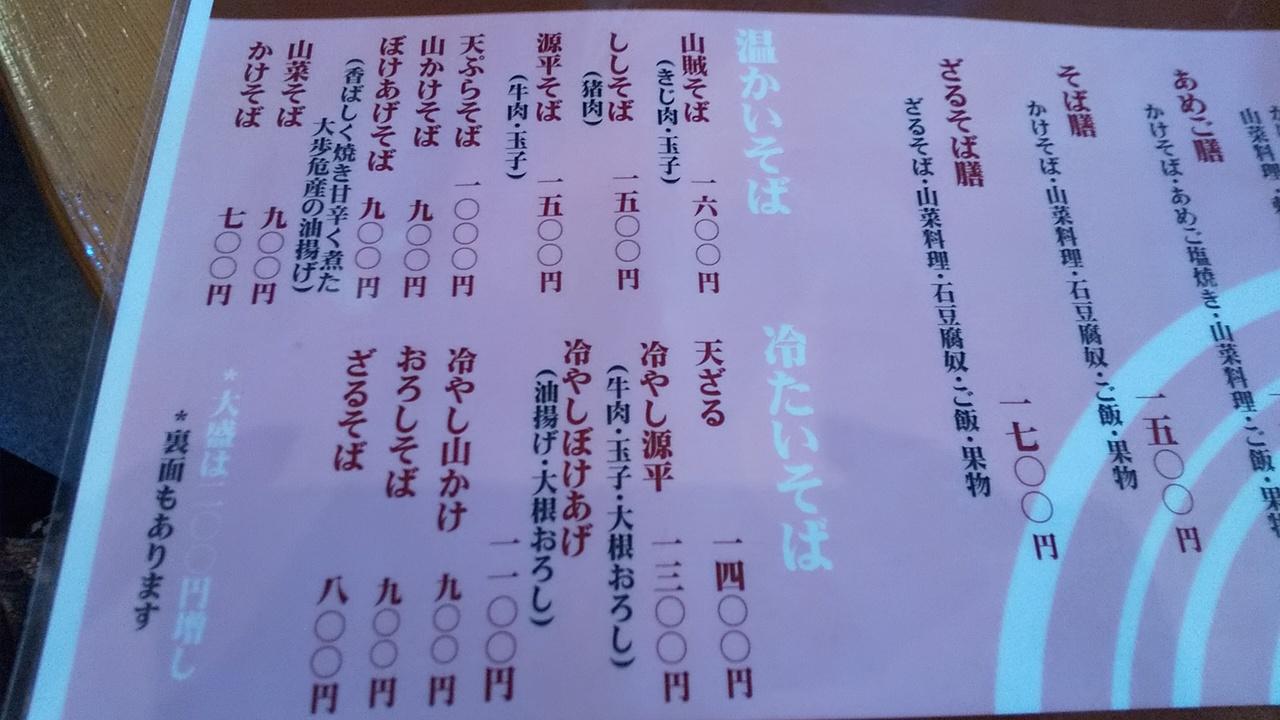 山菜料理・
あめご膳
かけそば・あめご塩焼き・山菜料理・ご飯・果物
そば膳
かけそば・山菜料理・石豆腐奴・ご飯・果物
一五〇〇円
ざるそば膳
ざるそば・山菜料理・石豆腐奴・ご飯・果物
一七〇〇円
温かいそば
山賊そば 一六〇〇円
(きじ肉・玉子)
ししそば 一五〇〇円
(猪肉)
源平そば 一五〇〇円
(牛肉・玉子)
天ぷらそば 一〇〇〇円
山かけそば 九〇〇円
ぼけあげそば 九〇〇円
(香ばしく焼き甘辛く煮た
大歩危産の油揚げ)
山菜そば 九〇〇円
かけそば 七〇〇円
冷たいそば
天ざる 一四〇〇円
冷やし源平 一三〇〇円
(牛肉・玉子・大根おろし)
冷やしぼけあげ 一一〇〇円
(油揚げ・大根おろし)
冷やし山かけ 九〇〇円
おろしそば 九〇〇円
ざるそば 八〇〇円
*大盛は二〇〇円増し
*裏面もあります